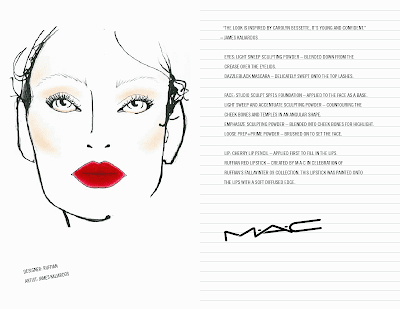 "THE LOOK IS INSPIRED BY CAROLYN BESSETTE, IT'S YOUNG AND CONFIDENT."
– JAMES KALIARDOS
EYES: LIGHT SWEEP SCULPTING POWDER – BLENDED DOWN FROM THE
CREASE OVER THE EYELIDS.
DAZZLEBLACK MASCARA – DELICATELY SWEPT ONTO THE TOP LASHES.
FACE: STUDIO SCULPT SPF15 FOUNDATION – APPLIED TO THE FACE AS A BASE.
LIGHT SWEEP AND ACCENTUATE SCULPTING POWDER – COUNTOURING THE
CHEEK BONES AND TEMPLES IN AN ANGULAR SHAPE.
EMPHASIZE SCULPTING POWDER – BLENDED INTO CHEEK BONES FOR HIGHLIGHT.
LOOSE PREP+PRIME POWDER – BRUSHED ON TO SET THE FACE.
LIP: CHERRY LIP PENCIL – APPLIED FIRST TO FILL IN THE LIPS.
RUFFIAN RED LIPSTICK – CREATED BY M.A.C IN CELEBRATION OF
RUFFIAN'S FALL/WINTER 09 COLLECTION, THIS LIPSTICK WAS PAINTED ONTO
THE LIPS WITH A SOFT DIFFUSED EDGE.
M·A·C
DESIGNER: RUFFIAN
ARTIST: JAMES KALIARDOS